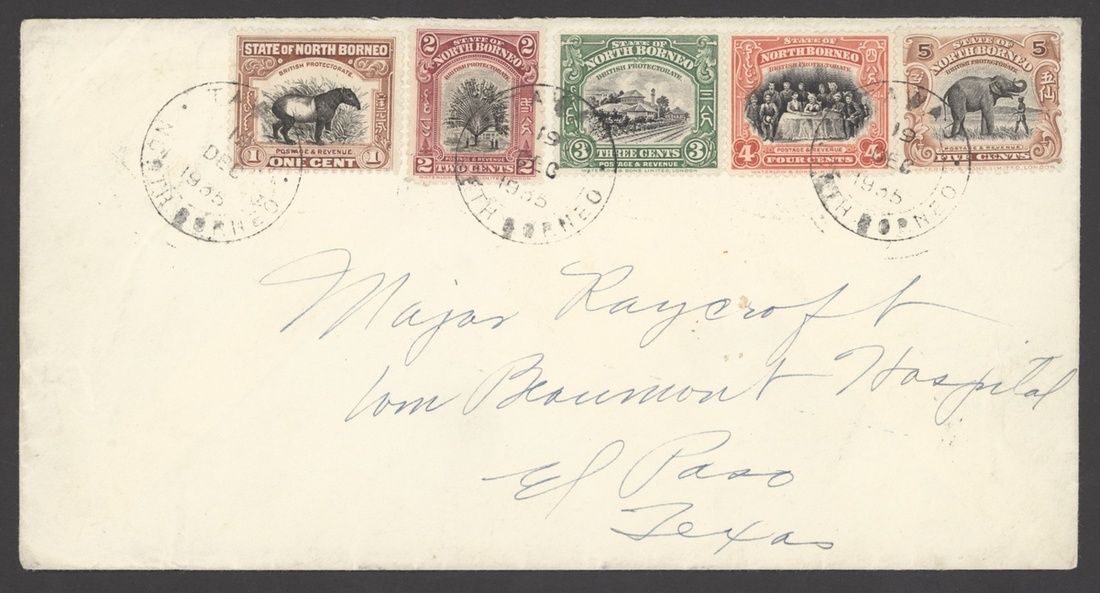 STATE OF NORTH BORNEO
BRITISH PROTECTORATE
1 POSTAGE & REVENUE 1
ONE CENT
2 STATE OF 2
NORTH BORNEO
BRITISH PROTECTORATE
POSTAGE & REVENUE
2 TWO CENTS 2
STATE OF
NORTH BORNEO
BRITISH PROTECTORATE
3 THREE CENTS 3
POSTAGE & REVENUE
WATERLOW & SONS LIMITED, LONDON
STATE OF
NORTH BORNEO
BRITISH PROTECTORATE
POSTAGE & REVENUE
4 FOUR CENTS 4
WATERLOW & SONS LIMITED, LONDON
5 STATE OF 5
NORTH BORNEO
BRITISH PROTECTORATE
POSTAGE & REVENUE
FIVE CENTS
DEC
1935
NORTH BORNEO
19
DEC
1935
NORTH BORNEO
19
DEC
1935
NORTH BORNEO
Major Raycroft
Wm Beaumont Hospital
El Paso
Texas